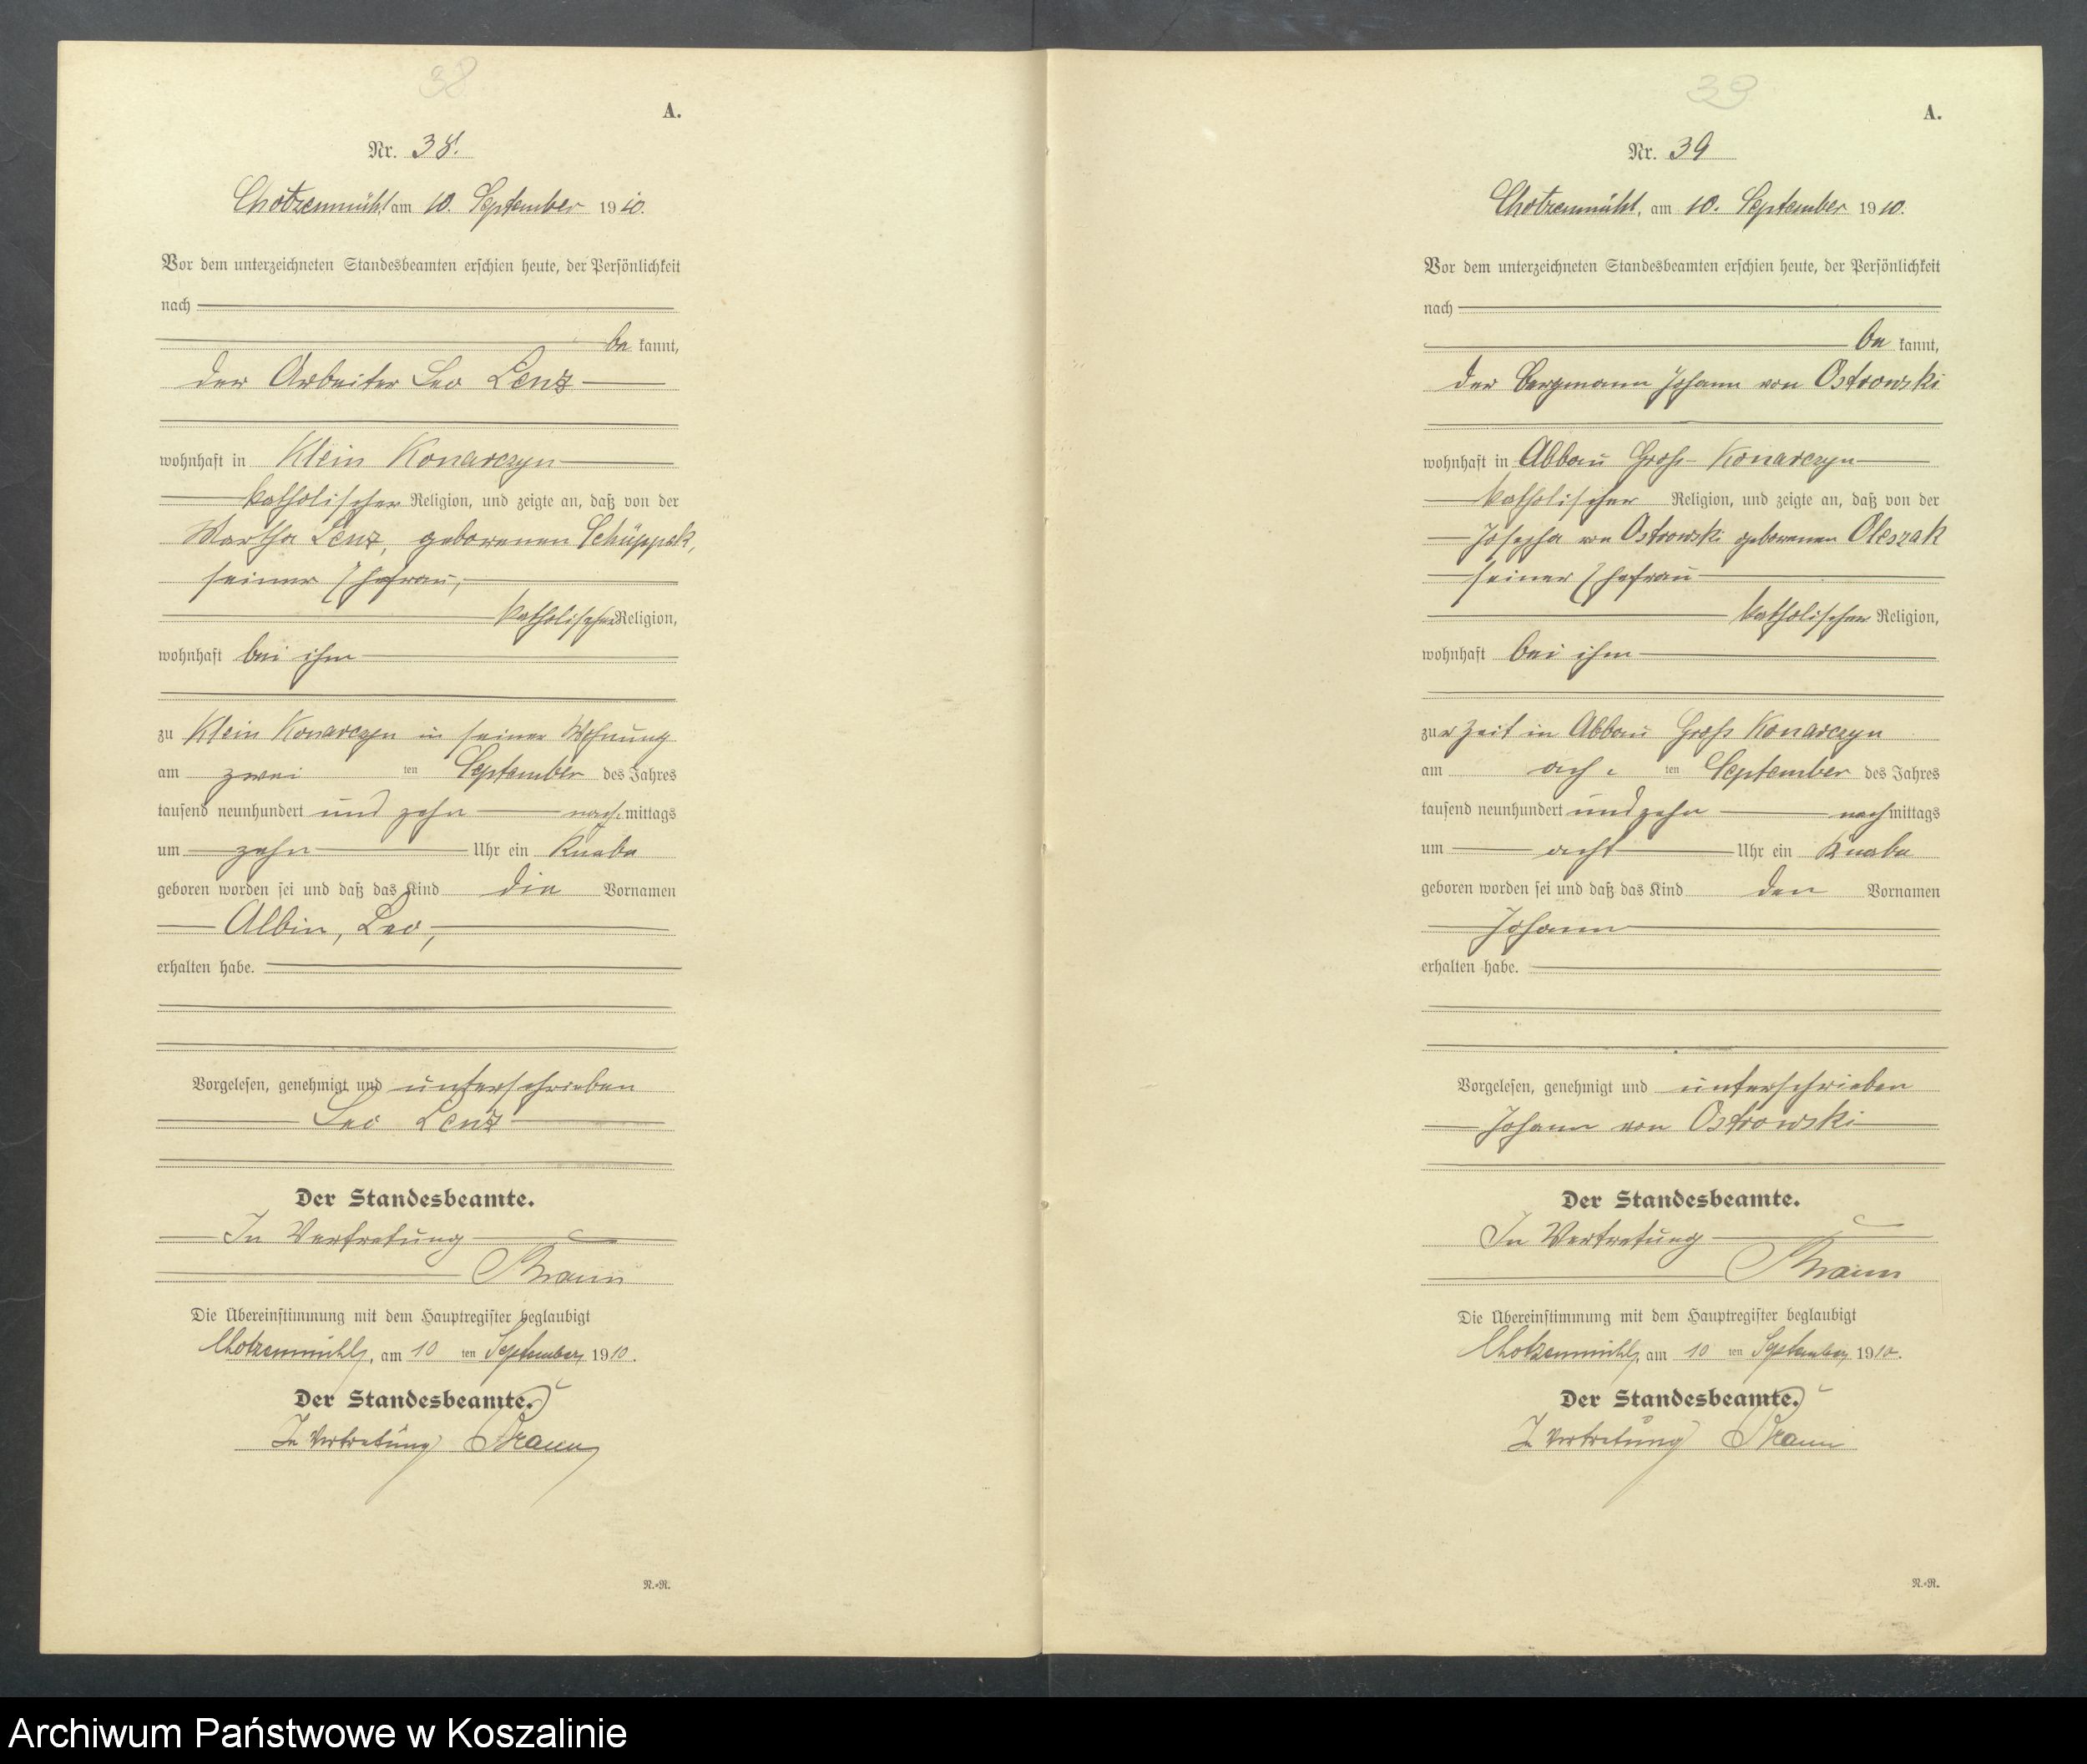 38
A.
Nr. 38.
Chotzenmühl am 10. September 1910.
Vor dem unterzeichneten Standesbeamten erschien heute, der Persönlichkeit
nach
be kannt,
der Arbeiter Leo Lenz
wohnhaft in Klein Konarczyn
katholischer Religion, und zeigte an, daß von der
Martha Lenz, geborenen Schüppek,
seiner Ehefrau,
katholischer Religion,
wohnhaft bei ihm
zu Klein Konarczyn in seiner Wohnung
am zwei ten September des Jahres
tausend neunhundert und zehn nach mittags
um zehn Uhr ein Knabe
geboren worden sei und daß das Kind die Vornamen
Albin, Leo,
erhalten habe.
Vorgelesen, genehmigt und unterschrieben
Leo Lenz
Der Standesbeamte.
In Vertretung
Braun
Die Übereinstimmung mit dem Hauptregister beglaubigt
Chotzenmühl, am 10 ten September 1910.
Der Standesbeamte.
In Vertretung Braun
N.-R.
39
A.
Nr. 39
Chotzenmühl, am 10. September 1910.
Vor dem unterzeichneten Standesbeamten erschien heute, der Persönlichkeit
nach
be kannt,
der Bergmann Johann von Ostrowski
wohnhaft in Abbau Groß-Konarczyn
katholischer Religion, und zeigte an, daß von der
Josepha von Ostrowski geborenen Oleszak
seiner Ehefrau
katholischer Religion,
wohnhaft bei ihm
zur Zeit in Abbau Groß Konarczyn
am ach ten September des Jahres
tausend neunhundert und zehn nach mittags
um acht Uhr ein Knabe
geboren worden sei und daß das Kind den Vornamen
Johann
erhalten habe.
Vorgelesen, genehmigt und unterschrieben
Johann von Ostrowski
Der Standesbeamte.
In Vertretung
Braun
Die Übereinstimmung mit dem Hauptregister beglaubigt
Chotzenmühl, am 10 ten September 1910.
Der Standesbeamte.
In Vertretung Braun
N.-R.
Archiwum Państwowe w Koszalinie